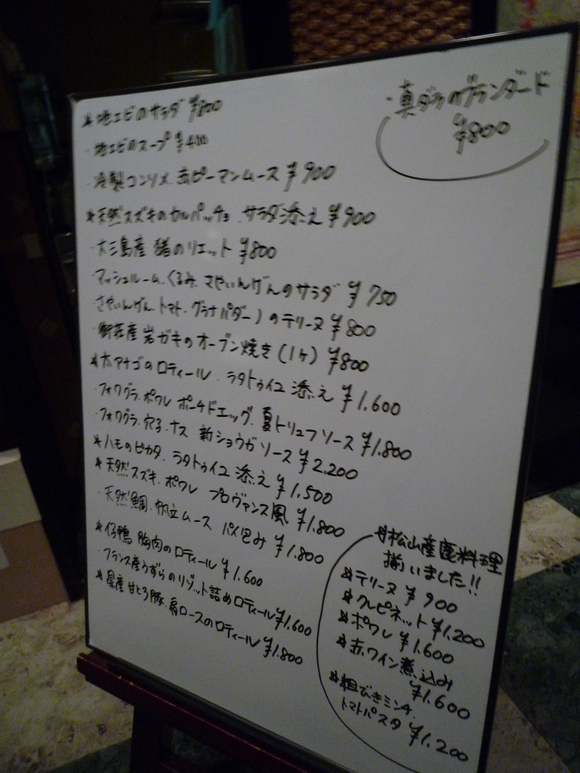 ★地エビのサラダ ¥800
・地エビのスープ ¥400
・冷製コンソメ、赤ピーマンムース ¥900
★天然スズキのカルパッチョ、サラダ添え ¥900
・大三島産 猪のリエット ¥800
マッシュルーム、くるみ、さやいんげんのサラダ ¥750
さやいんげん、トマト、グラナパダーノのテリーヌ ¥800
・御荘産岩ガキのオーブン焼き(1ヶ) ¥800
★大アナゴのロティール、ラタトゥイユ添え ¥1.600
・フォワグラ、ポワレ ポーチドエッグ、夏トリュフソース ¥1.800
・フォワグラ、穴子、ナス 新ショウガソース ¥2.200
★ハモのピカタ、ラタトゥイユ添え ¥1.500
★天然スズキ、ポワレ プロヴァンス風 ¥1.800
・天然鯛、帆立ムース パイ包み ¥1.800
★仔鴨 胸肉のロティール ¥1.600
・フランス産うずらのリゾット詰めロティール ¥1.600
★県産 甘とろ豚、肩ロースのロティール ¥1.800
・真ダラのブランダード
¥800
松山産鹿料理
揃いました!!
★テリーヌ ¥900
★クレピネット ¥1.200
★ポワレ ¥1.600
★赤ワイン煮込み
¥1.600
★粗びきミンチ、
トマトパスタ ¥1.200